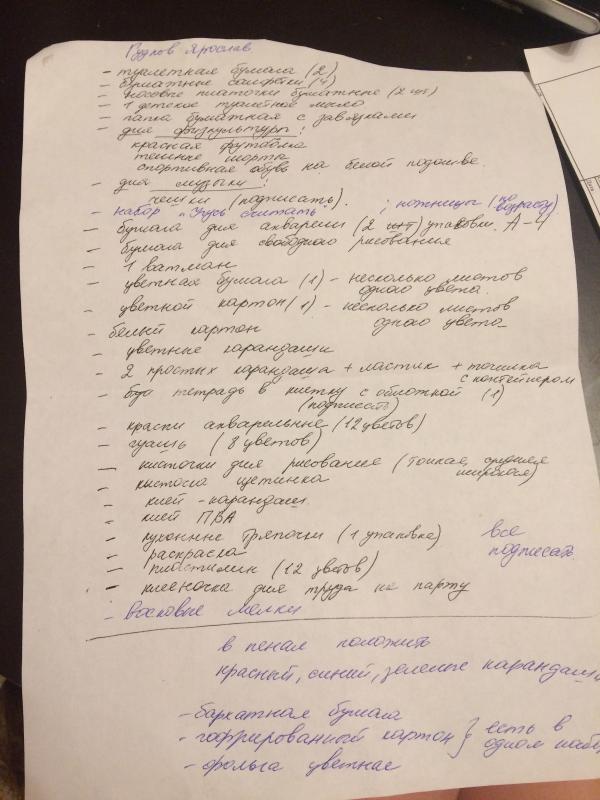 Рудков Ярослав
- туалетная бумага (2)
- бумажные салфетки (4)
- носовые платочки бумажные (2 шт)
- 1 детское туалетное мыло
- папка бумажная с завязками
- для физкультуры:
красная футболка
темные шорты
спортивная обувь на белой подошве.
- для музыки:
чешки (подписать).
- набор "Учусь считать" ; ножницы (по возрасту)
- бумага для акварели (2 шт) упаковки. А-4
- бумага для свободного рисования
- 1 ватман
- цветная бумага (1) - несколько листов
одного цвета.
- цветной картон (1) - несколько листов
одного цвета
- белый картон
- цветные карандаши
- 2 простых карандаша + ластик + точилка
с контейнером
- тетрадь в клетку с обложкой (1)
(подписать)
- краски акварельные (12 цветов)
- гуашь (8 цветов)
- кисточки для рисования (тонкая, средняя
широкая)
- кисточка щетинка
- клей - карандаш
- клей ПВА
- кухонные тряпочки (1 упаковка)
- раскраска
все
подписать
- пластилин (12 цветов)
- клеёночка для труда на парту
- Восковые мелки
в пенал положить
красный, синий, зеленые карандаши
- бархатная бумага
- гофрированный картон } есть в
одном
- фольга цветная